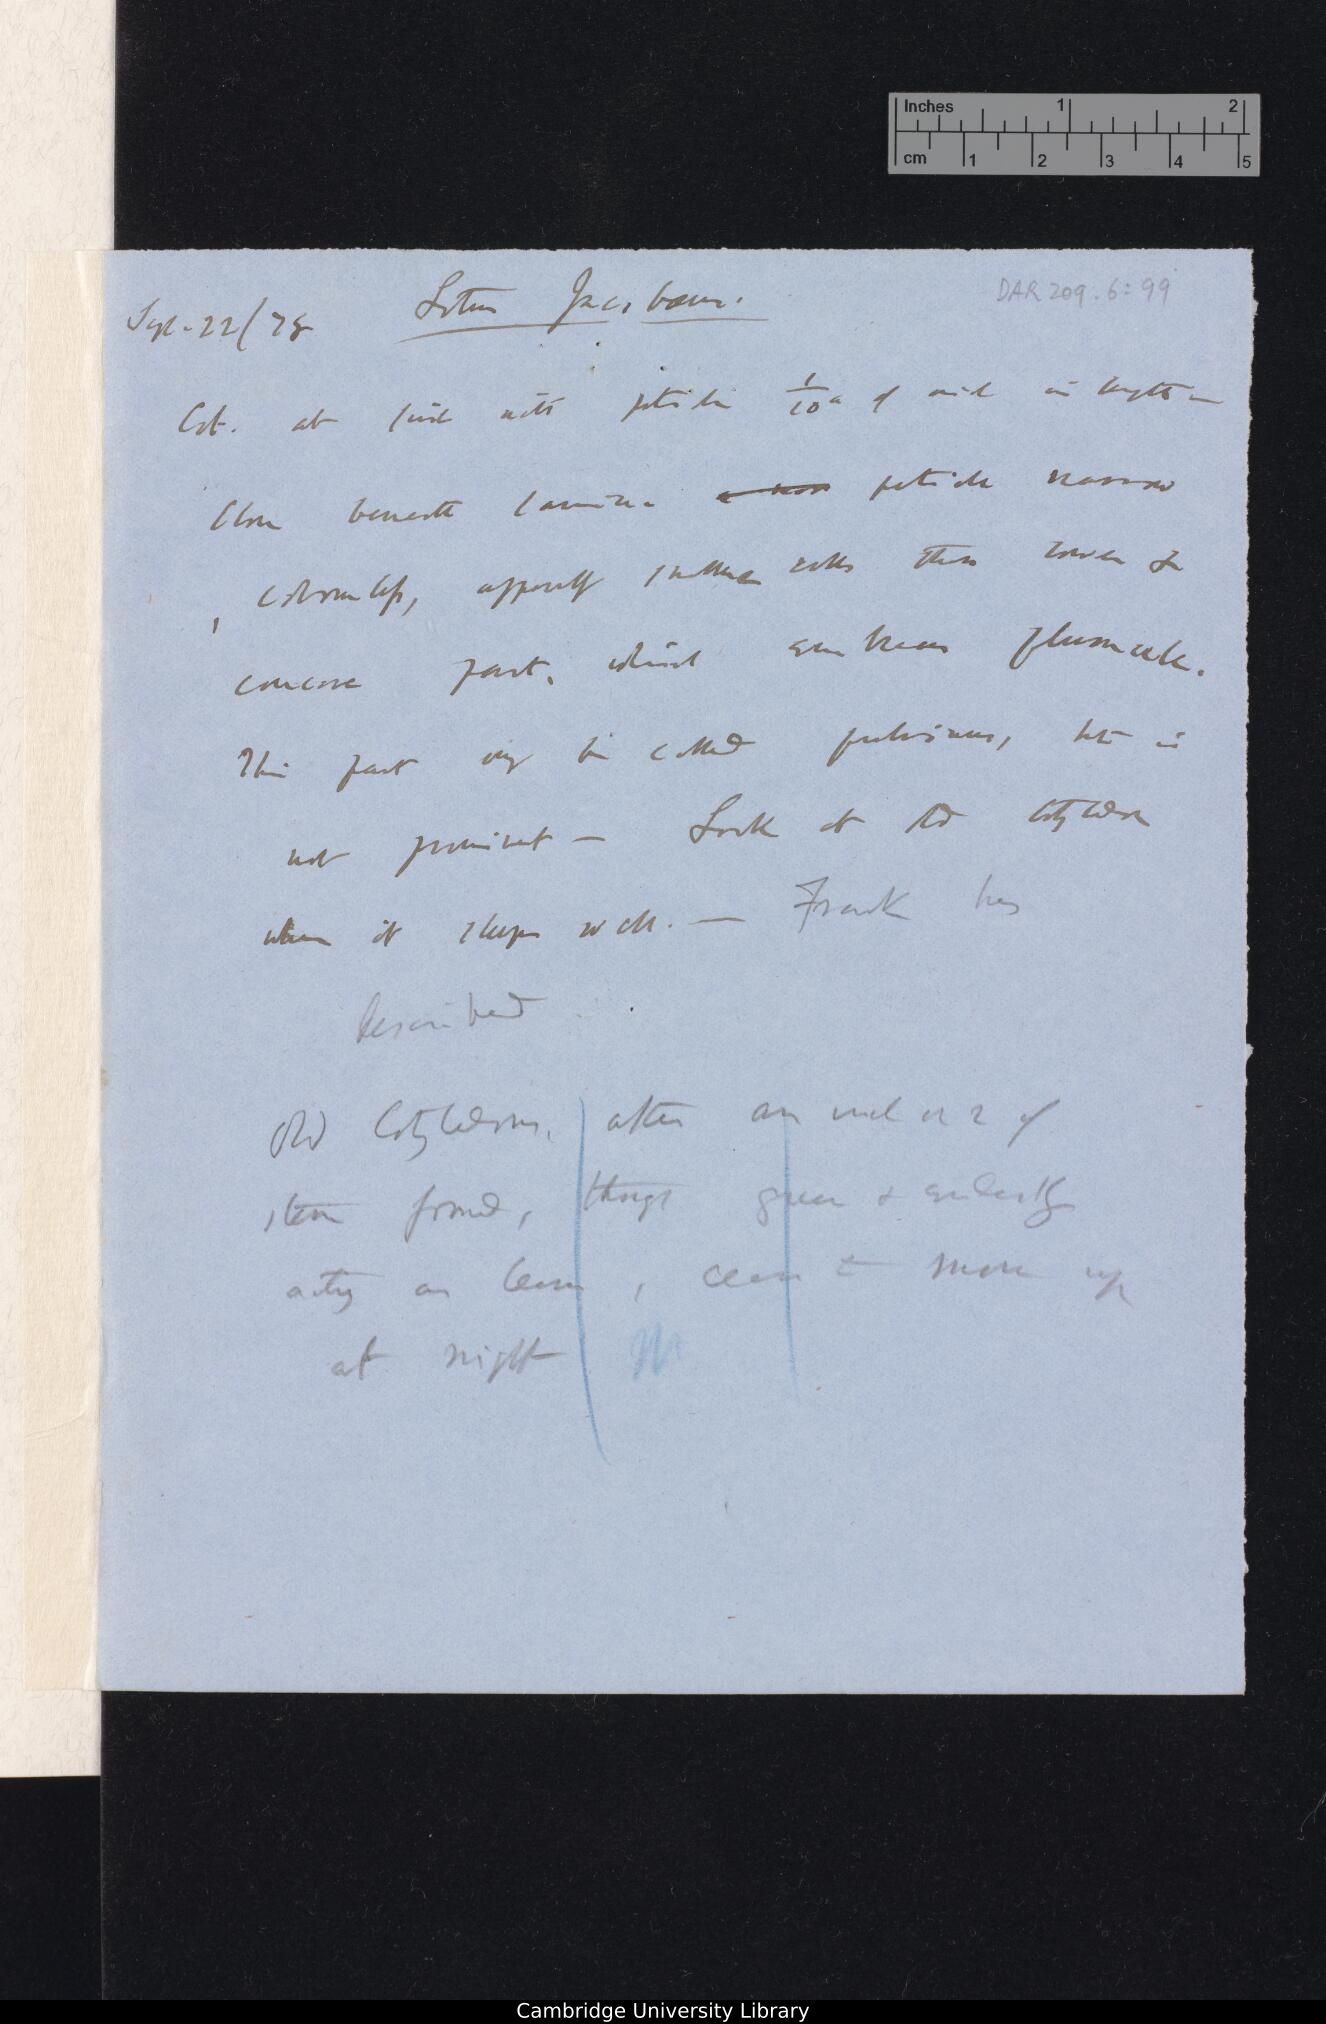 Inches 1 2
cm 1 2 3 4 5
DAR 209.6: 99
Sept. 22/78 Lotus Jacobaeus.
Cot. at first with petiole 1/10th of inch in length —
Close beneath lamina petiole narrow
& colourless, apparently smaller cells than lower &
concave part, which embraces plumule.
This part may be called pulvinus, but is
not prominent — Look at old cotyledon
when it sleeps well. — Frank has
described
Old Cotyledons, after an inch or 2 of
stem formed, though green & evidently
acting as leaves, cease to move up
at night
Cambridge University Library